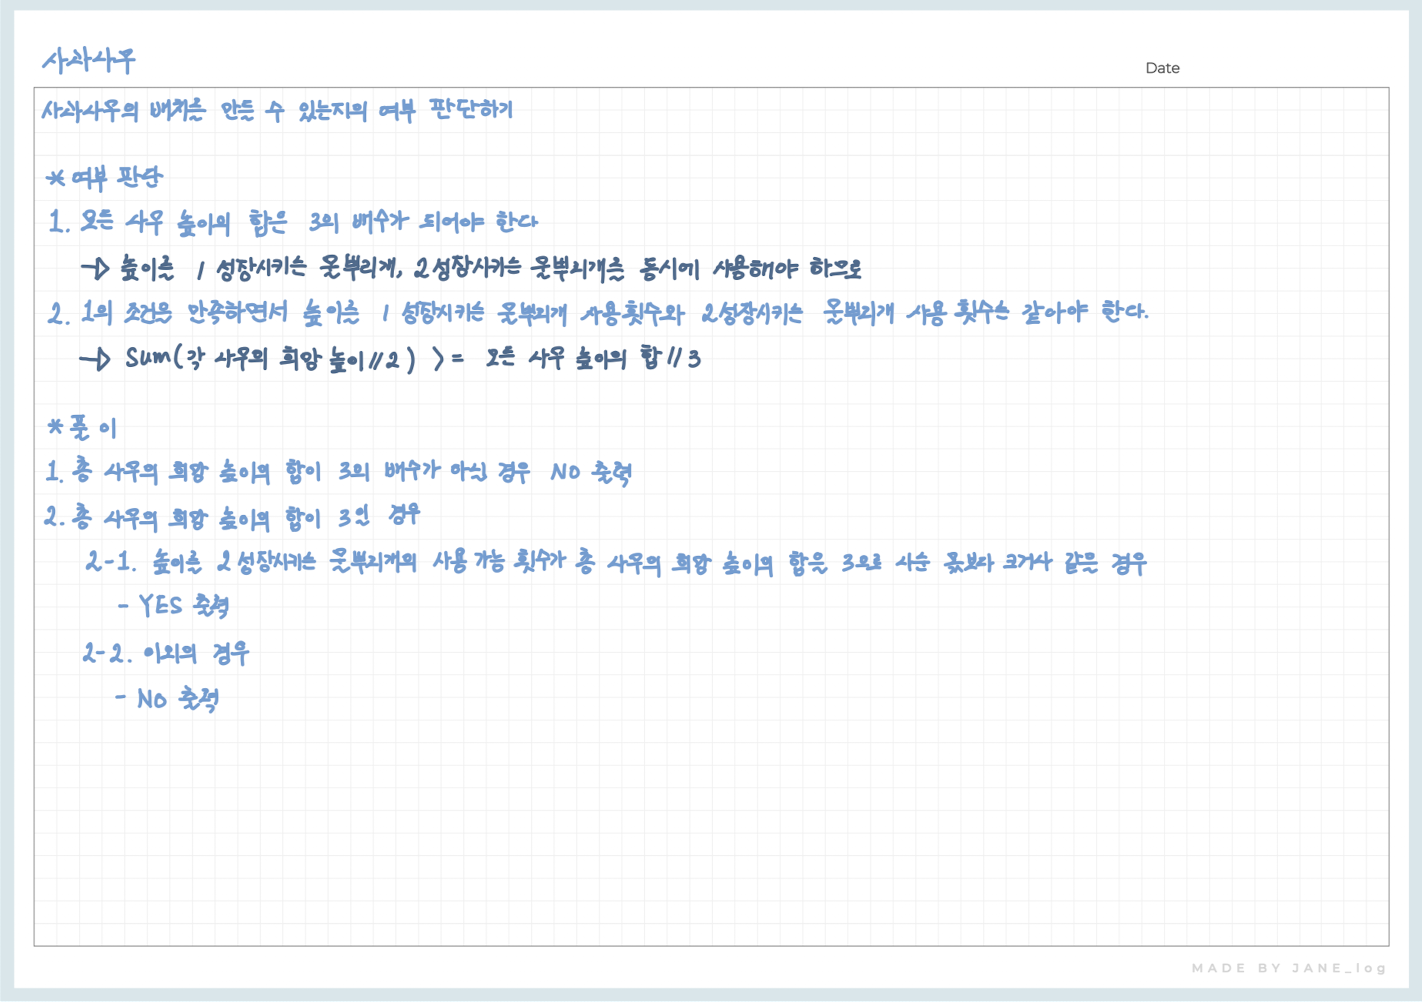 사과나무
Date
사과나무의 배치를 만들 수 있는지의 여부 판단하기
* 여부 판단
1. 모든 나무 높이의 합은 3의 배수가 되어야 한다
→ 높이를 1 성장시키는 물뿌리개, 2성장시키는 물뿌리개를 동시에 사용해야 하므로
2. 1의 조건을 만족하면서 높이를 1 성장시키는 물뿌리개 사용횟수와 2성장시키는 물뿌리개 사용 횟수는 같아야 한다.
→ Sum(각 나무의 희망 높이//2) >= 모든 나무 높이의 합//3
* 풀이
1. 총 나무의 희망 높이의 합이 3의 배수가 아닌 경우 NO 출력
2. 총 나무의 희망 높이의 합이 3인 경우
2-1. 높이를 2성장시키는 물뿌리개의 사용 가능 횟수가 총 나무의 희망 높이의 합을 3으로 나눈 몫보다 크거나 같은 경우
- YES 출력
2-2. 이외의 경우
- NO 출력
MADE BY JANE_log